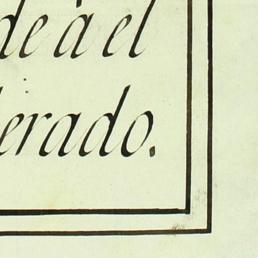 de à el
erado.